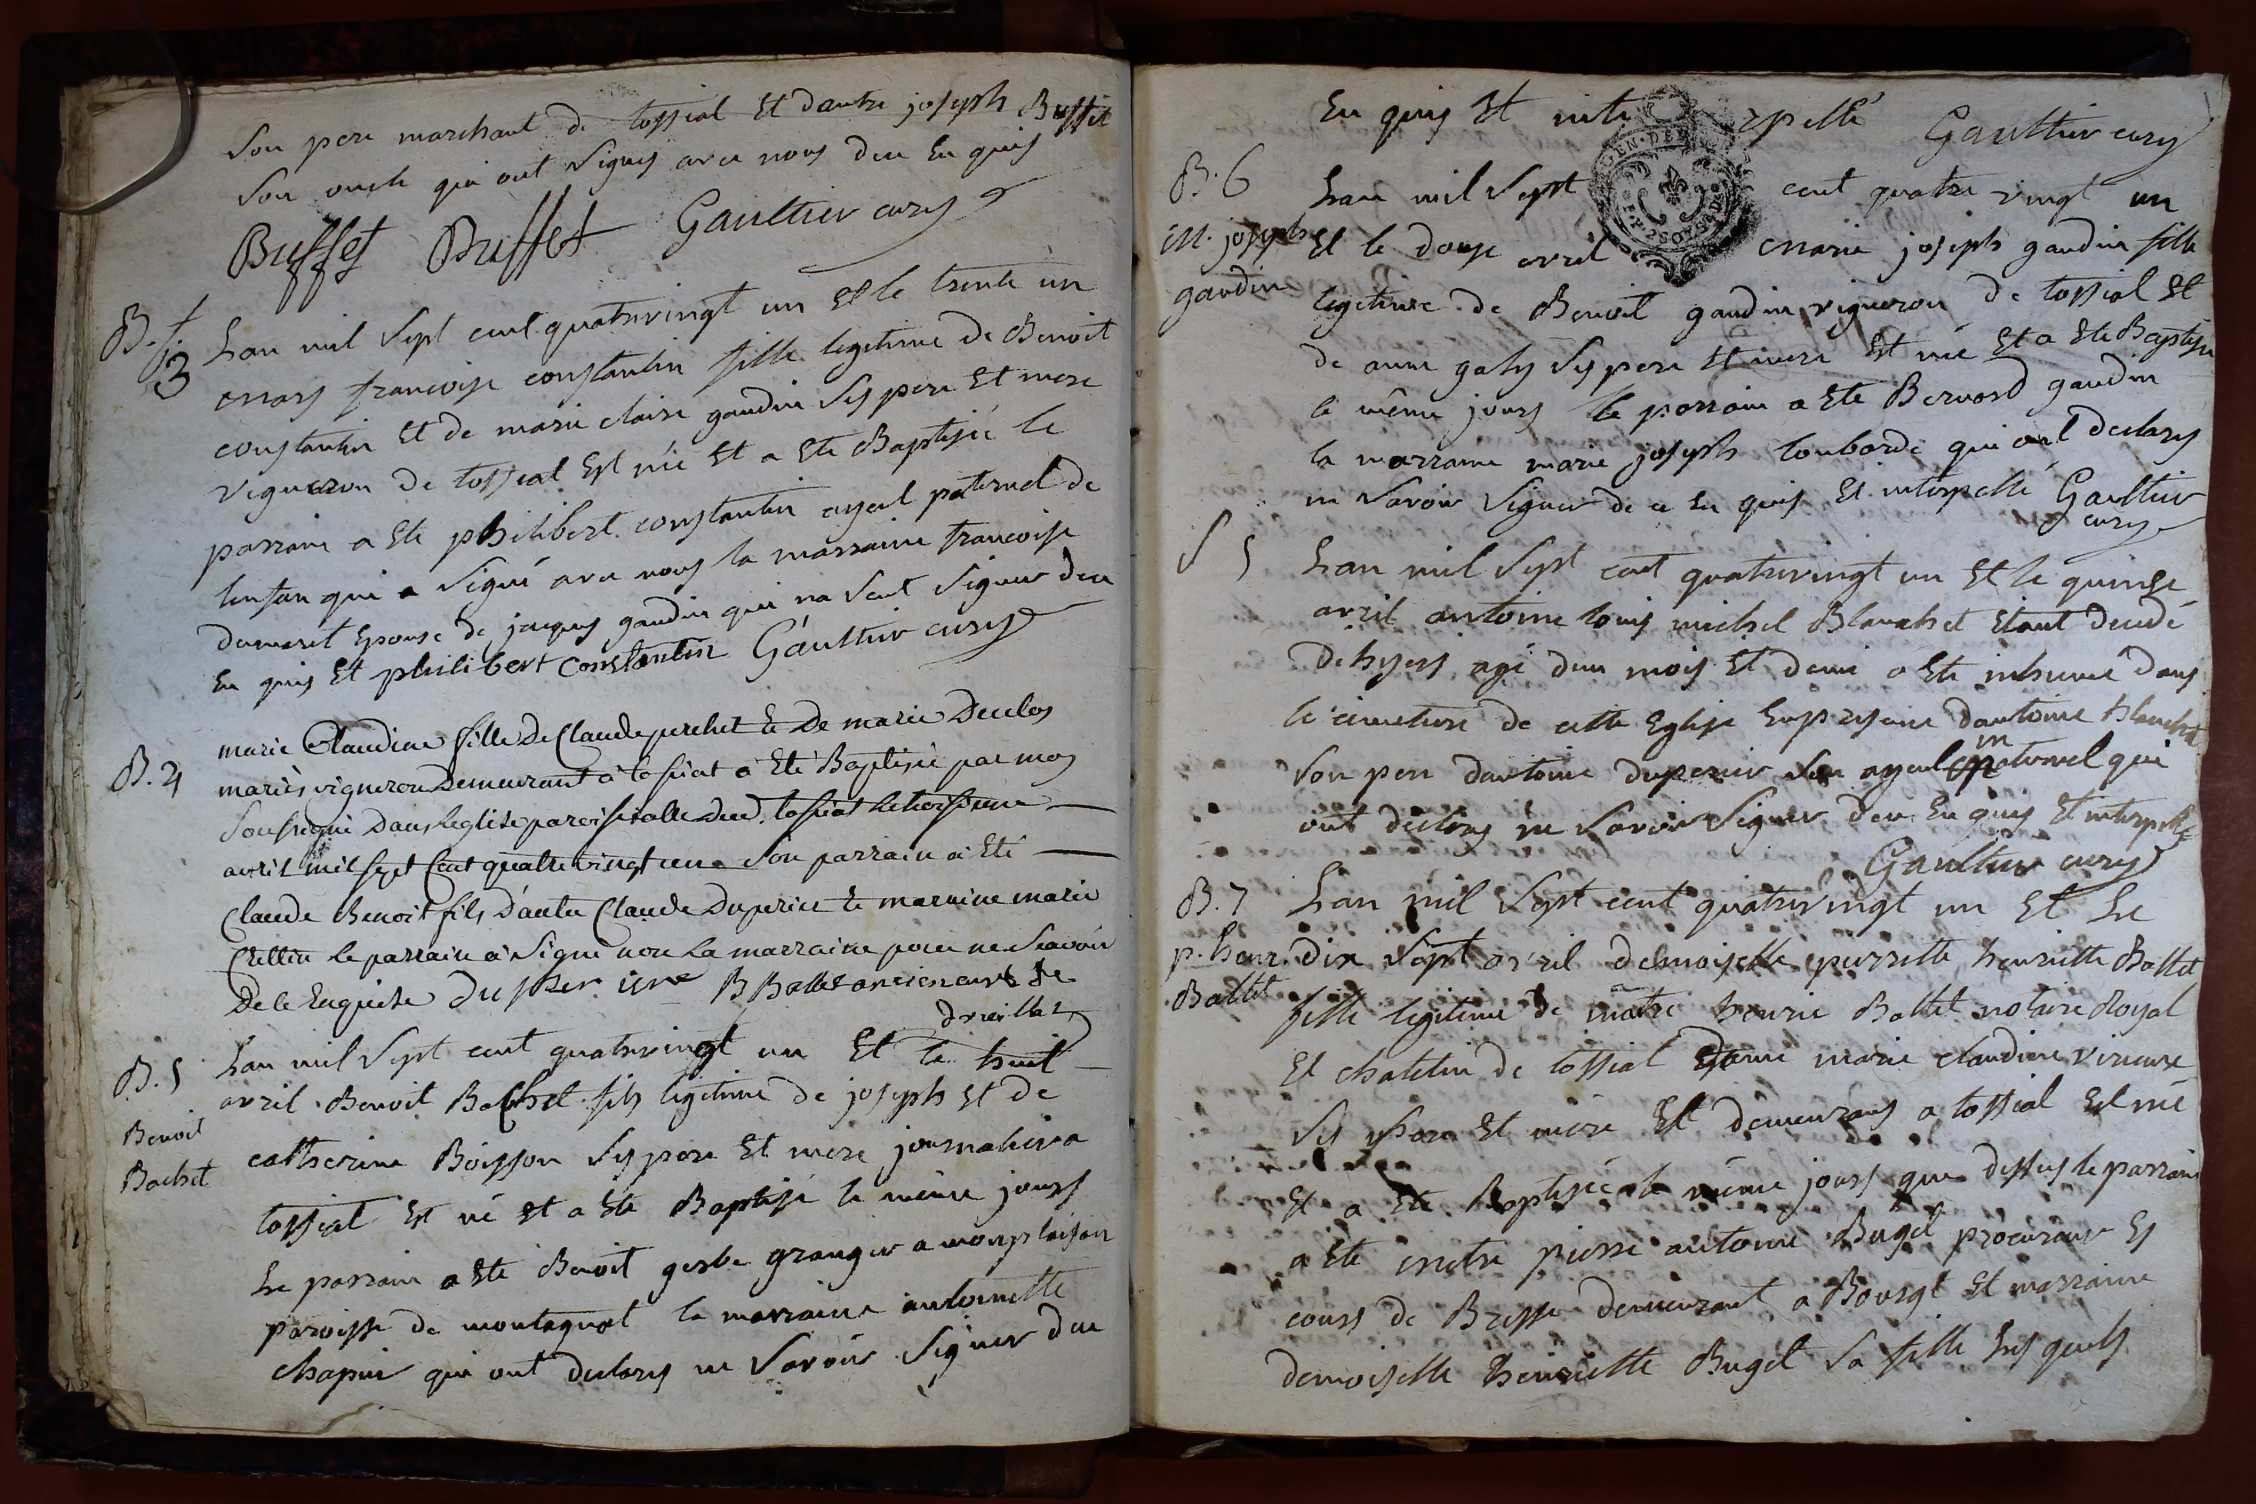 son pere marchant de tossiat et dautre joseph Buffet
son oncle qui ont signes avec nous deu en quis
Buffet Buffet Gaultier curé
B. f.
3
Lan mil sept cent quatrevingt un et le trente un
mars francoise constantin fille legitime de Benoit
constantin et de marie claire gaudin ses pere et mere
vigneron de tossiat est née et a ete Baptisée le
parrain a ete philibert constantin ayeul paternel de
lenfan qui a signé avec nous la marraine francoise
dumaret epouse de jacques gaudin qui na scut signer deu
en quis et philibert constantin Gaultier curé
B. 4
marie Claudine fille de Claude perchet & de marie Duclos
mariés vigneron Demeurant à tossiat a Eté Baptisée par moy
soussigné dans leglise paroissialle dud. tossiat le troisieme
avril mil sept Cent quatre vingt un. son parrain a Eté
Claude Benoit fils d'autre Claude Duperier & marraine marie
le parrain a signé non la marraine pour ne scavoir
de le Enquise duperier B Ballet ancien curé de
druillat
B. 5
Benoit
Bachet
Lan mil sept cent quatrevingt un et le huit
avril Benoit Bachet fils legitime de joseph et de
catherine Boisson ses pere et mere journalier a
tossiat est né et a ete Baptisé le même jours
Le parrain a ete Benoit gerbe granger a monplaisan
paroisse de montagnat la marraine antoinette
chapuis qui ont declarez ne savoir signer deu
en quis et interpellé Gaultier curé
GEN. DE
B. 6
M. joseph
gaudin
Lan mil sept cent quatre vingt un
et le douze avril marie joseph gaudin fille
legitime de Benoit gaudin vigneron de tossiat et
de anne ses pere et mere est née et a ete Baptisée
le même jours le parrain a ete Bernard gaudin
la marraine marie joseph loubarde qui ont declarez
ne savoir signer de ce en quis et interpellé Gaultier
curé
S 5
Lan mil sept cent quatrevingt un et le quinze
avril antoine louis michel Blanchet étant decedé
dehyers agé dun mois et demi a ete inhumé dans
le cimetiere de cette Eglise en presence dantoine Blanchet
son pere dantoine duperier son ayeul maternel qui
ont declarez ne savoir signer deu en quis et interpellé
Gaultier curé
B. 7
p. henr.
Ballet
Lan mil sept cent quatrevingt un et Le
dix sept avril demoiselle pierrette henriette Ballet
fille legitime de maitre henrie Ballet notaire Royal
et chatelin de tossiat dame marie claudine
ses pere et mere et demeurans a tossiat est née
et a ete Baptisée le même jours que dessus le parrain
a ete maitre pierre antoine Buget procureur es
cours de Bresse demeurant a Bourgt et marraine
demoiselle henriette Buget sa fille les quels